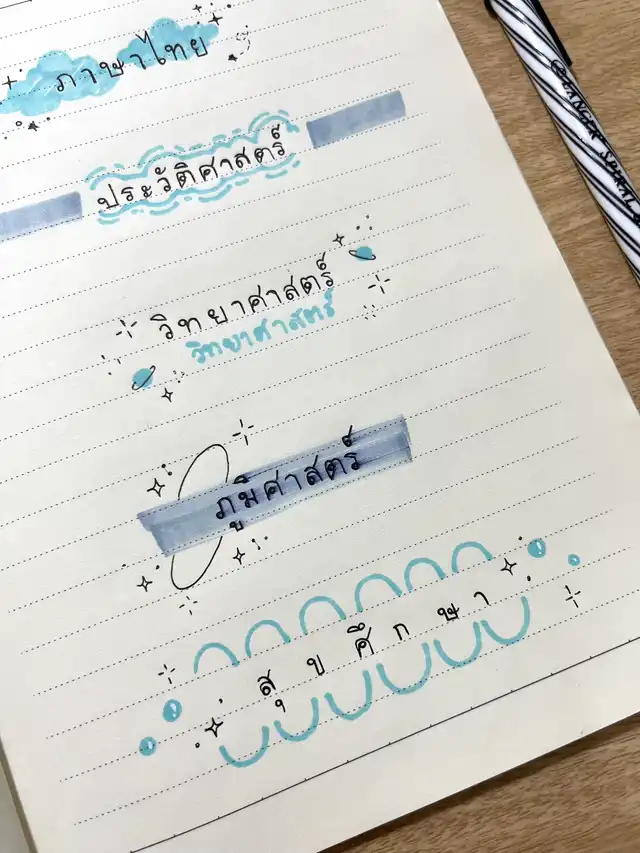 ภาษาไทย
ประวัติศาสตร์
วิทยาศาสตร์
วิทยาศาสตร์
ภูมิศาสตร์
สุขศึกษา